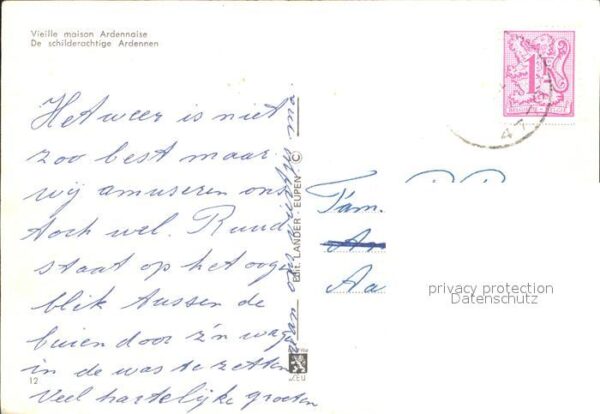 Vieille maison Ardennaise
De schilderachtige Ardennen
Het weer is niet
zoo best maar
wij amuseren ons
toch wel. Ruud
staat op het ogen
blik tussen de
buien door z'n wag
in de was te zetten
Veel hartelijke groeten
van
12
Edit. LANDER - EUPEN ©
1F
47
Fam.
Aa
privacy protection
Datenschutz